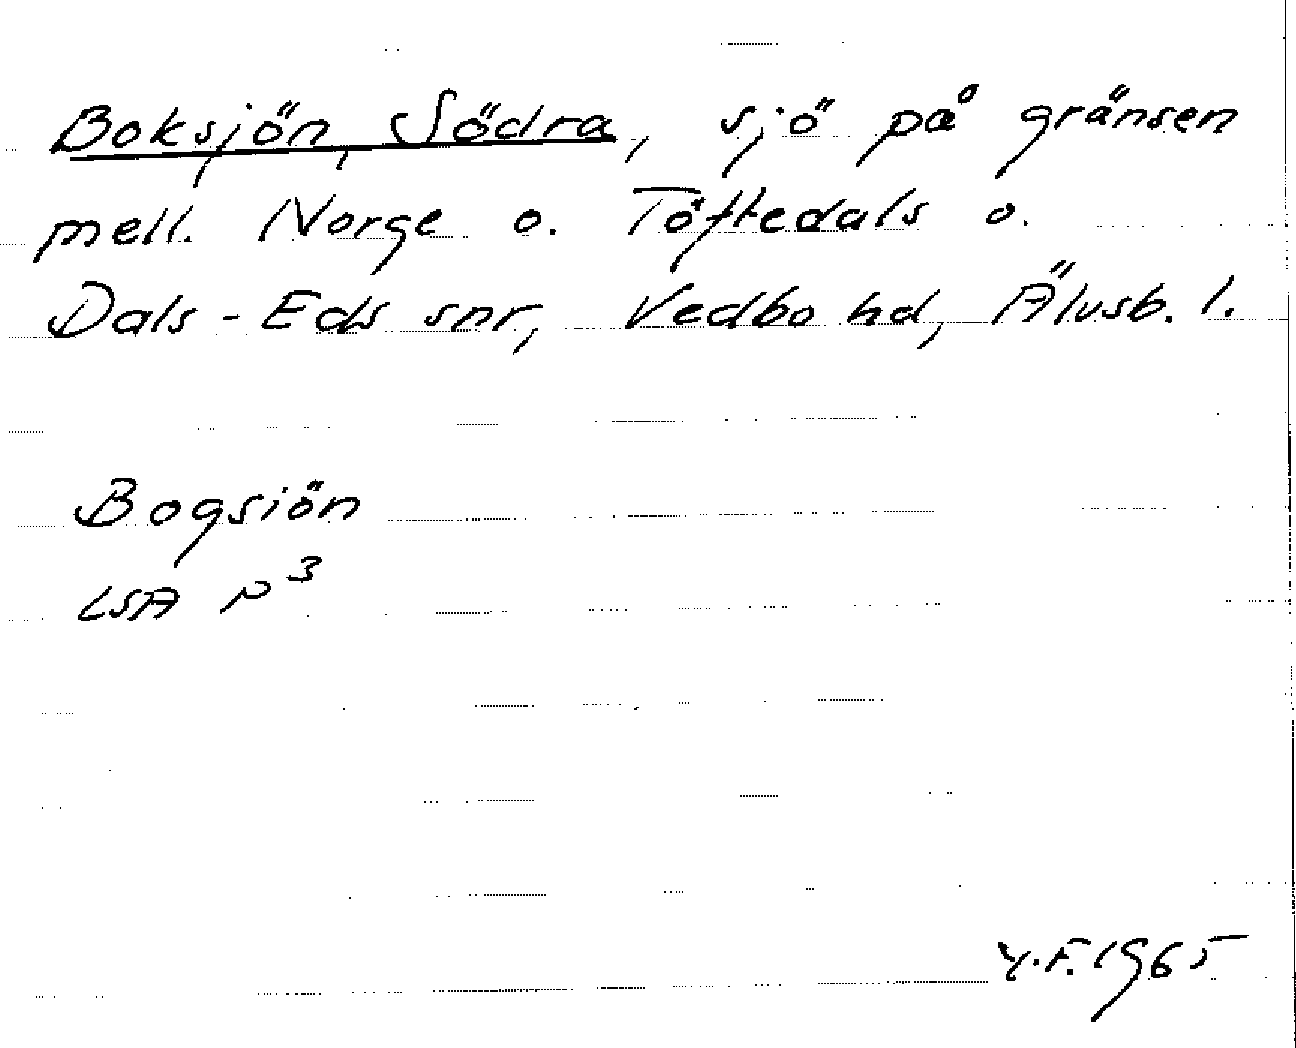 Boksjön, Södra, sjö på gränsen
mell. Norge o. Töftedals o.
Dals-Eds snr, Vedbo hd, Älvsb. l.
Bogsiön
LSA P3
Y.F. 1965